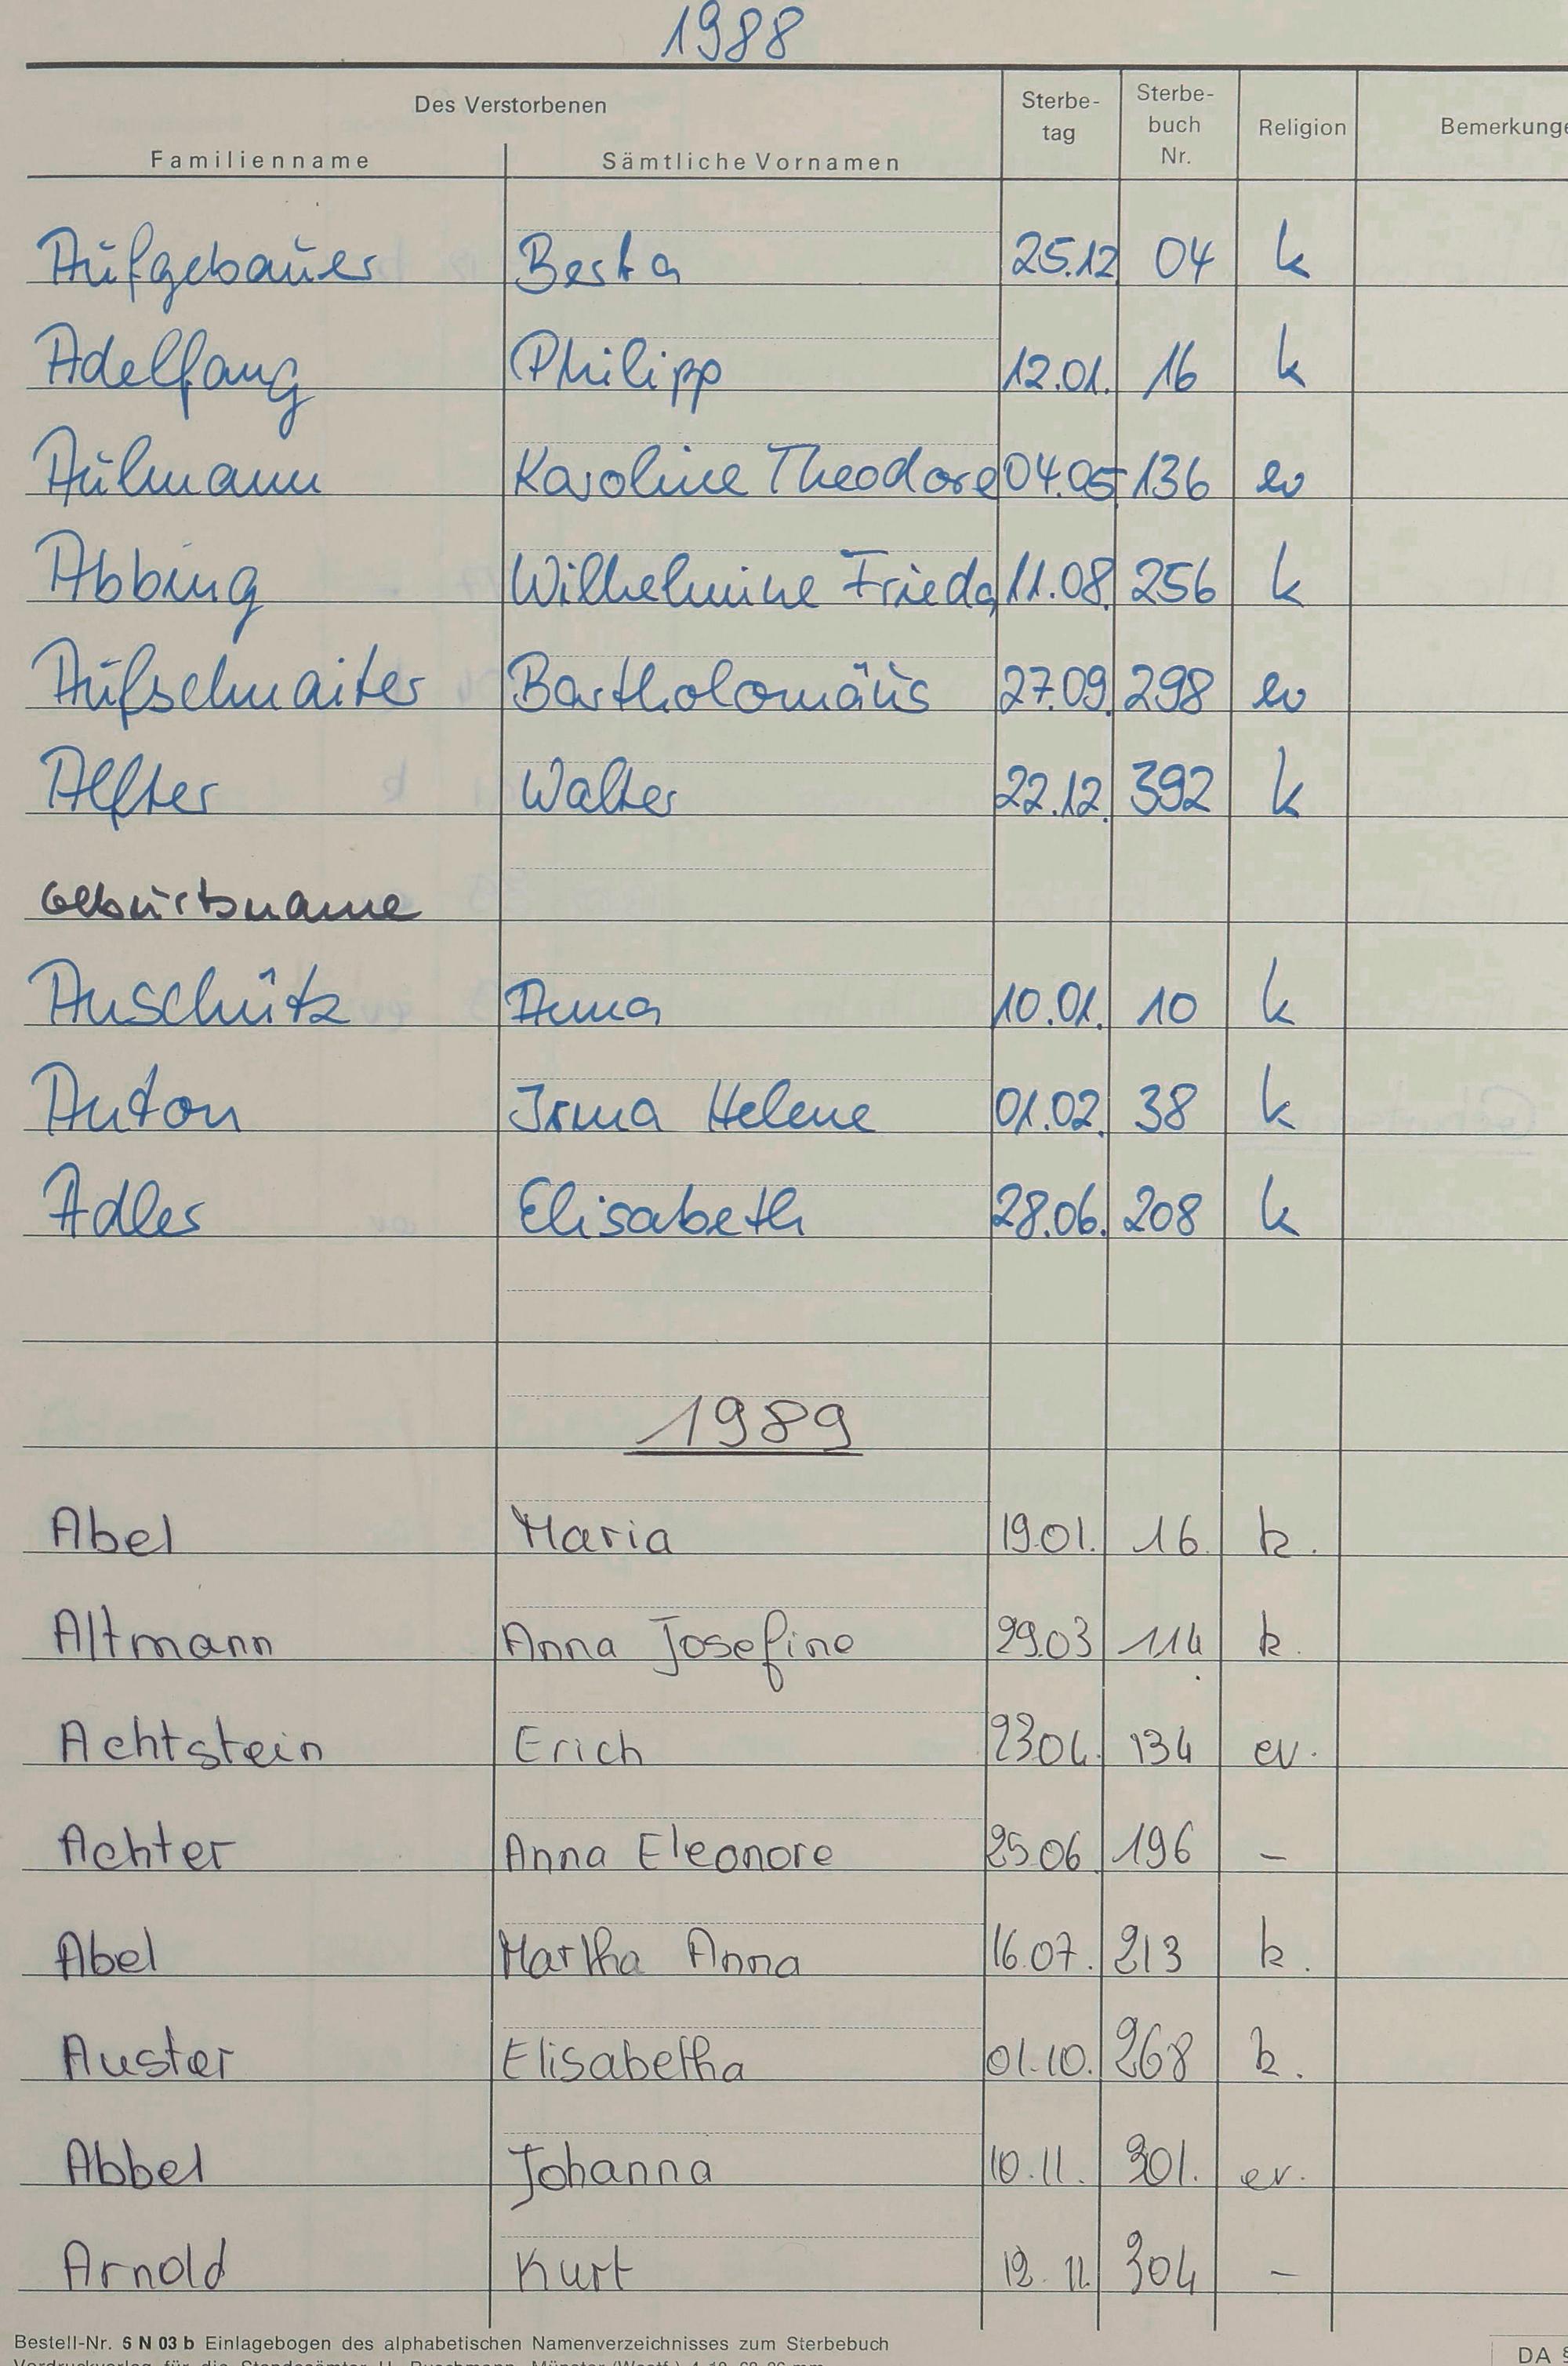 1988
Des Verstorbenen
Sterbe-
tag
Sterbe-
buch
Nr.
Religion
Familienname Sämtliche Vornamen
Aufgebauer Berta 25.12 04 k
Adelfang Philipp 12.01. 16 k
Aulmann Karoline Theodore 04.05 136 ev
Abbing Wilhelmine Frieda 11.08. 256 k
Aufschnaiter Bartholomäus 27.09. 298 ev
Alfter Walter 22.12. 392 k
Geburtsname
Anschütz Anna 10.01. 10 k
Anton Irma Helene 01.02. 38 k
Adler Elisabeth 28.06. 208 k
1989
Abel Maria 19.01. 16. k.
Altmann Anna Josefine 29.03 114 k.
Achtstein Erich 23.04. 134 ev.
Achter Anna Eleonore 25.06 196 –
Abel Martha Anna 16.07. 213 k.
Auster Elisabetha 01.10. 268 k.
Abbel Johanna 10.11. 301. ev.
Arnold Kurt 12.11. 304 –
Bestell-Nr. 6 N 03 b Einlagebogen des alphabetischen Namenverzeichnisses zum Sterbebuch
DA